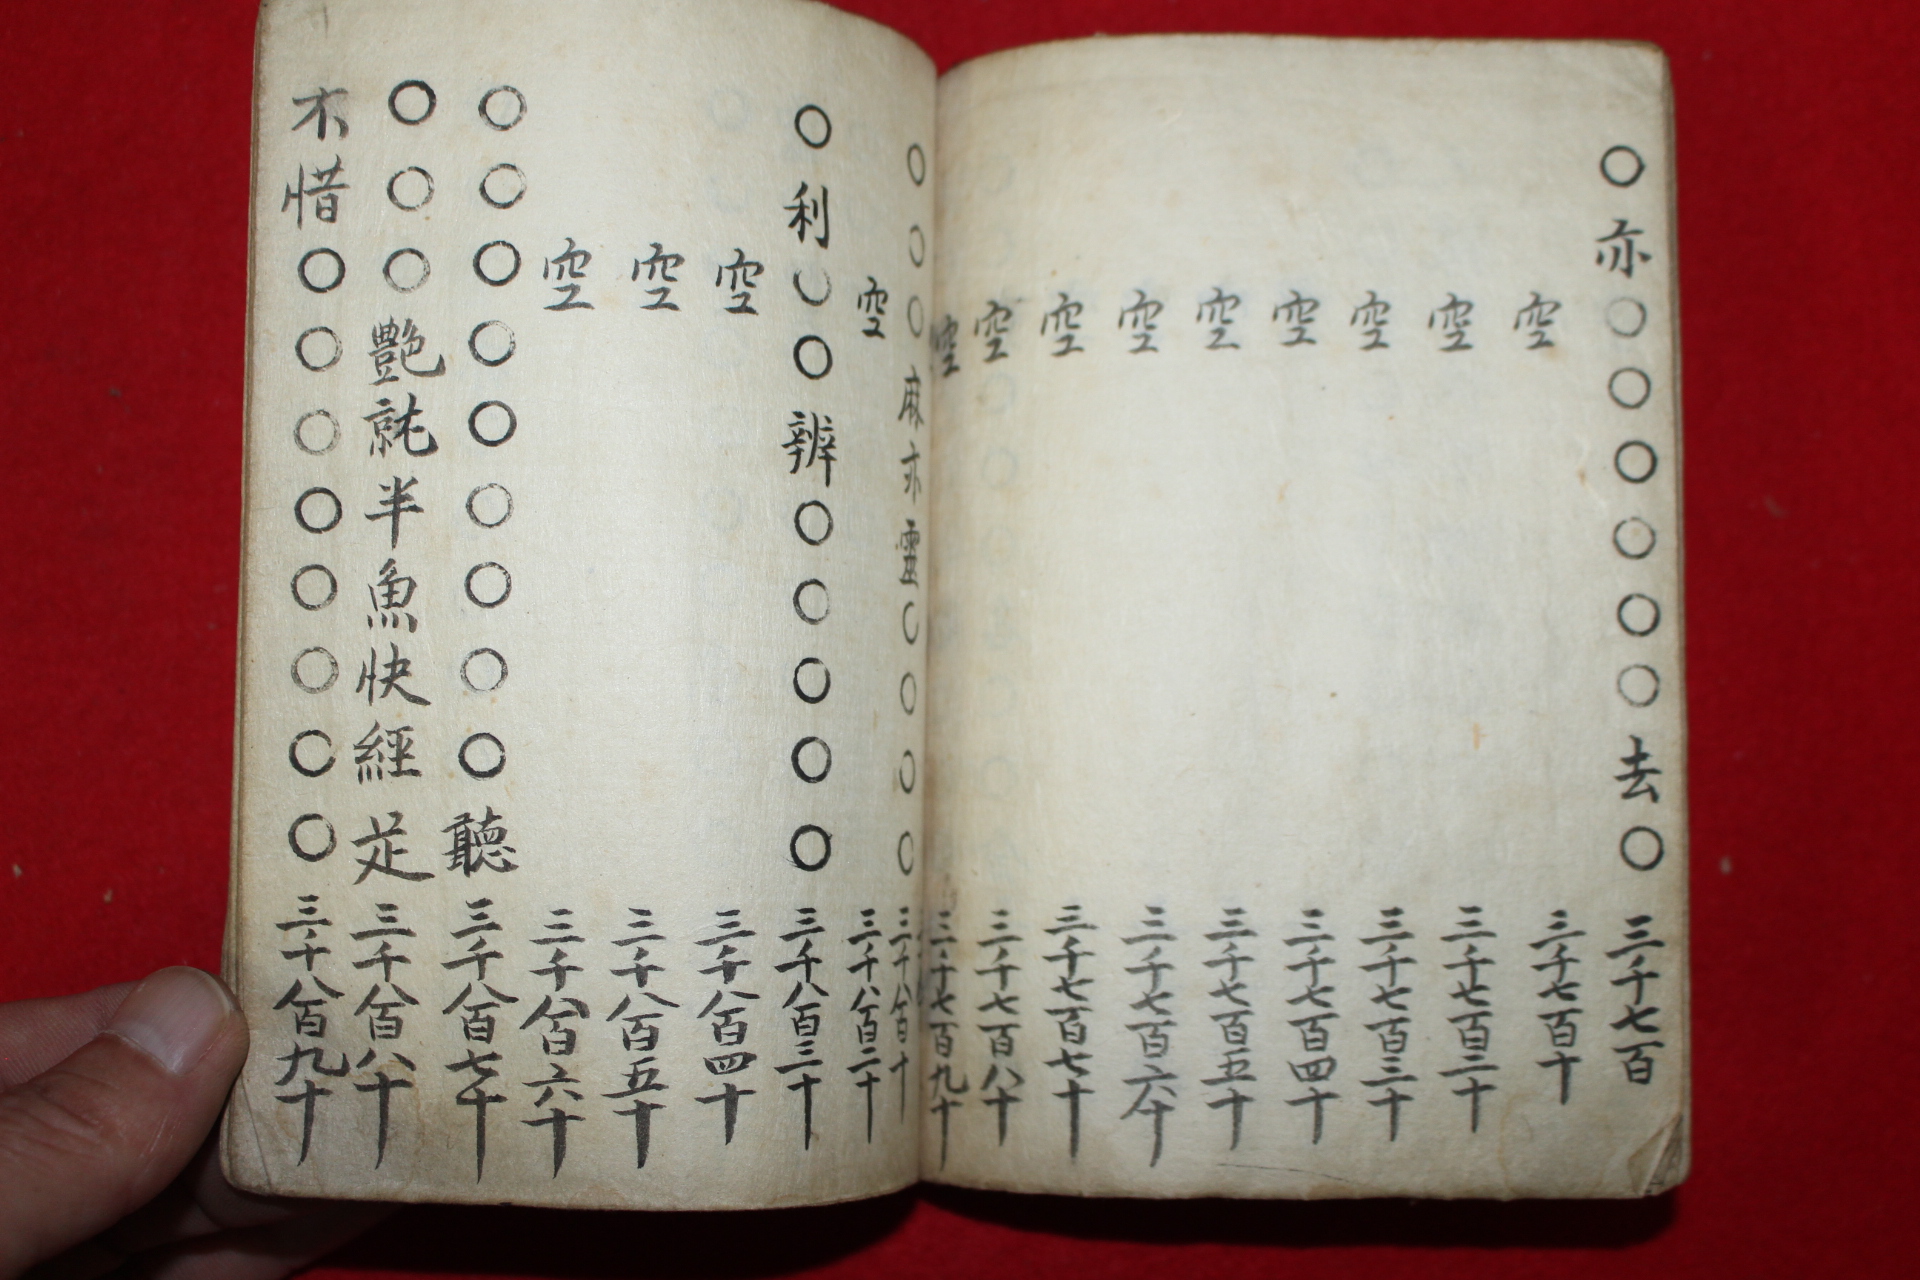 ○亦○○○○○○去○三千七百
空三千七百十
空三千七百二十
空三千七百三十
空三千七百四十
空三千七百五十
空三千七百六十
空三千七百七十
空三千七百八十
空三千七百九十
○○○麻亦靈○○○○三千八百十
空三千八百二十
○利○○辨○○○○○三千八百三十
空三千八百四十
空三千八百五十
空三千八百六十
○○○○○○○○○聽三千八百七十
○○○艶半魚快經三千八百八十
不惜○○○○○○○○三千八百九十